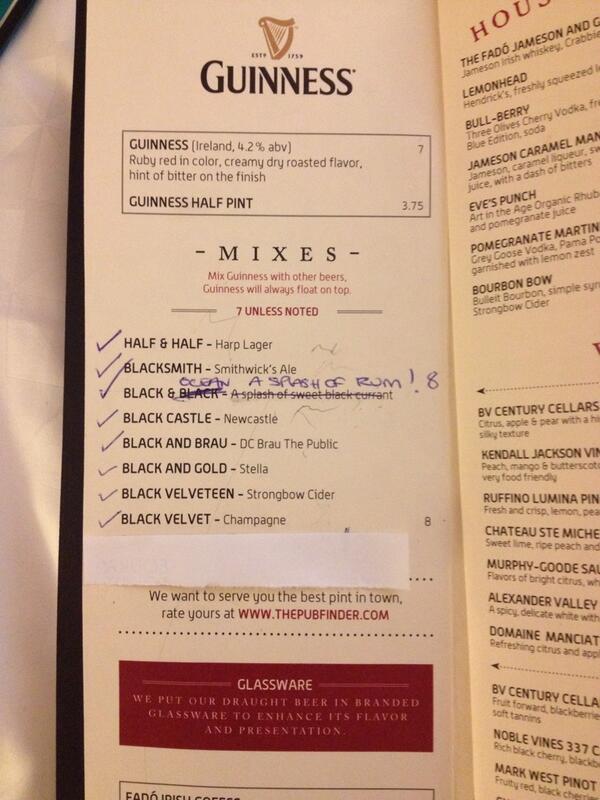 ESTD 1759
GUINNESS
GUINNESS (Ireland, 4.2% abv) 7
Ruby red in color, creamy dry roasted flavor,
hint of bitter on the finish
GUINNESS HALF PINT 3.75
- MIXES -
Mix Guinness with other beers,
Guinness will always float on top.
7 UNLESS NOTED
HALF & HALF – Harp Lager
BLACKSMITH – Smithwick's Ale
OCEAN A SPLASH OF RUM! 8
BLACK & BLACK - A splash of sweet black currant
BLACK CASTLE – Newcastle
BLACK AND BRAU – DC Brau The Public
BLACK AND GOLD – Stella
BLACK VELVETEEN – Strongbow Cider
BLACK VELVET – Champagne 8
We want to serve you the best pint in town,
rate yours at WWW.THEPUBFINDER.COM
GLASSWARE
WE PUT OUR DRAUGHT BEER IN BRANDED
GLASSWARE TO ENHANCE ITS FLAVOR
AND PRESENTATION.
FADÓ IRISH COFFEE
HOUS
THE FADÓ JAMESON AND G
Jameson Irish whiskey, Crabbie
LEMONHEAD
Hendrick's, freshly squeezed l
BULL-BERRY
Three Olives Cherry Vodka, fre
Blue Edition, soda
JAMESON CARAMEL MAN
Jameson, caramel liqueur, sw
juice, with a dash of bitters
EVE'S PUNCH
Art in the Age Organic Rhub
and pomegranate juice
POMEGRANATE MARTIN
Grey Goose Vodka, Pama Po
garnished with lemon zest
BOURBON BOW
Bulleit Bourbon, simple syr
Strongbow Cider
BV CENTURY CELLARS
Citrus, apple & pear with a hi
silky texture
KENDALL JACKSON VIN
Peach, mango & butterscotc
very food friendly
RUFFINO LUMINA PIN
Fresh and crisp, lemon, pea
CHATEAU STE MICHE
Sweet lime, ripe peach and
MURPHY-GOODE SAU
Flavors of bright citrus, wh
ALEXANDER VALLEY
A spicy, delicate white with
DOMAINE MANCIAT
Refreshing citrus and appl
BV CENTURY CELLA
Fruit forward, blackberrie
soft tannins
NOBLE VINES 337 C
Rich black cherry, blackb
MARK WEST PINOT
Fruity, red, black cherries